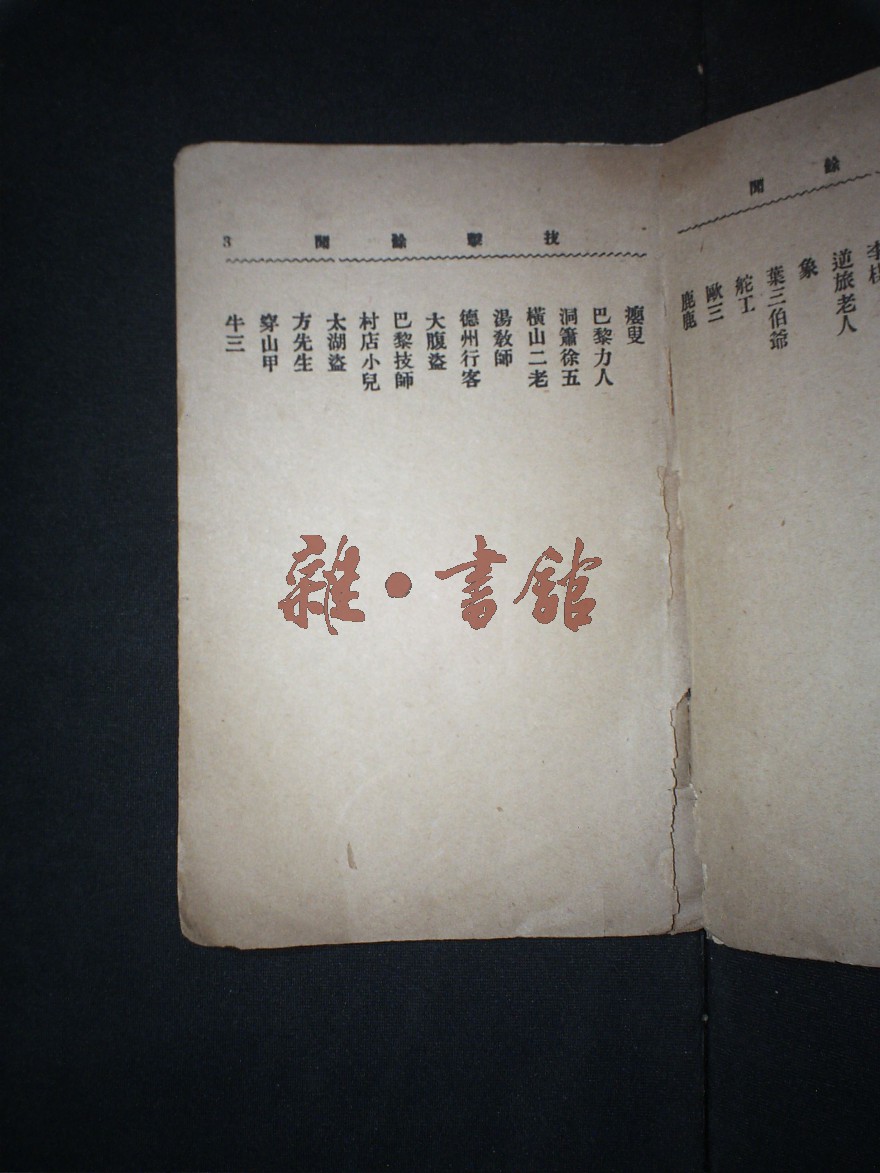 餘聞
逆旅老人
象
葉三伯爺
舵工
歐三
鹿鹿
技擊餘聞 3
瘿叟
巴黎力人
洞簫徐五
橫山二老
湯敎師
德州行客
大腹盜
巴黎技師
村店小兒
太湖盜
方先生
穿山甲
牛三
雜·書館